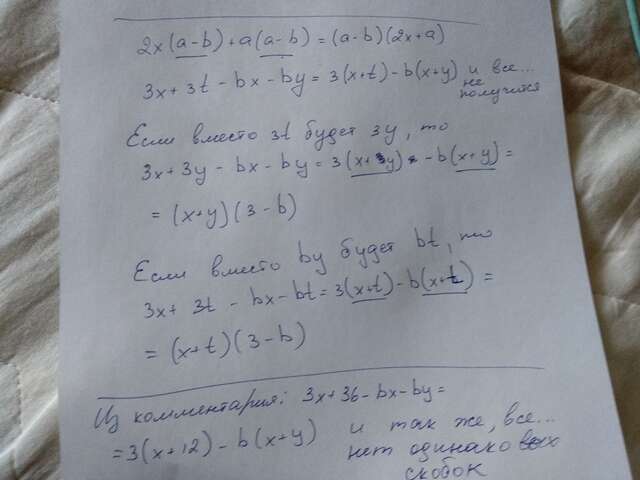 2x(a-b)+a(a-b)=(a-b)(2x+a)
3x+3t-bx-by=3(x+t)-b(x+y) и все...
не
получится
Если вместо 3t будет 3y, то
3x+3y-bx-by=3(x+y)-b(x+y)=
=(x+y)(3-b)
Если вместо by будет bt, то
3x+3t-bx-bt=3(x+t)-b(x+t)=
=(x+t)(3-b)
Из комментария: 3x+36-bx-by=
=3(x+12)-b(x+y) и так же, все...
нет одинаковых
скобок